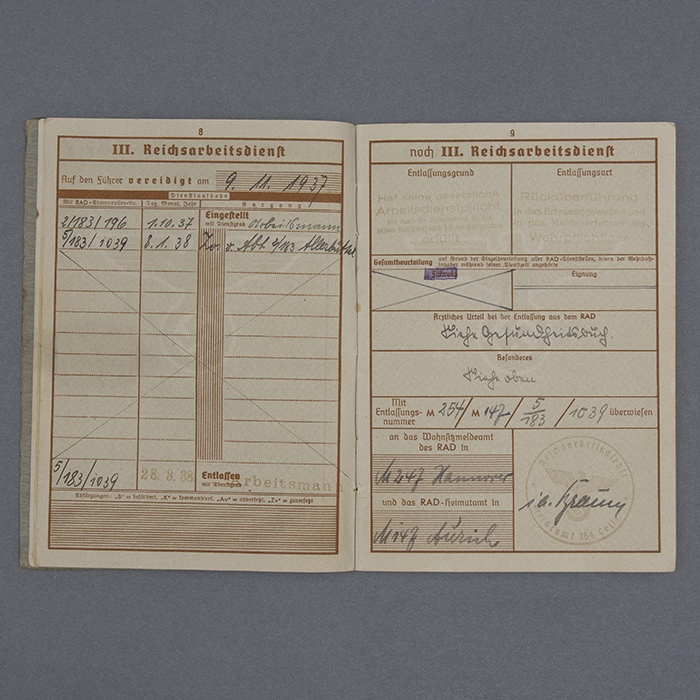 8
III. Reichsarbeitsdienst
Auf den Führer vereidigt am 9. 11. 1937
Dienstlaufbahn
Mit RAD-Stammrollen-Nr. Tag, Monat, Jahr Vorgang
Eingestellt
2/183/196 1.10.37 mit Dienstgrad Arbeitsmann
5/183/1039 8.1.38 Zv. v. Abt. 2/183
5/183/1039 28.3.38 Entlassen
mit Dienstgrad Arbeitsmann
Abkürzungen: „B“ = befördert, „K“ = kommandiert, „Av“ = abversetzt, „Zv“ = zuversetzt
9
noch III. Reichsarbeitsdienst
Entlassungsgrund Entlassungsart
Hat seine gesetzliche
Arbeitsdienstpflicht
Rücküberführung
in das
Wehrpflichtiger
Gesamtbeurteilung auf Grund der Einzelbeurteilung aller RAD-Dienststellen, denen der Wehrpflichtige während seiner Dienstzeit angehörte
Führung
Eignung
Ärztliches Urteil bei der Entlassung aus dem RAD
Siehe Gesundheitsbuch.
Besonderes
Siehe oben
Mit Entlassungsnummer M 254 / M 147 / 5/183 / 1039 überwiesen
an das Wohnsitzmeldeamt
des RAD in
M 247 Hannover
und das RAD-Heimatamt in
M 147 Aurich
Reichsarbeitsdienst
i.a.